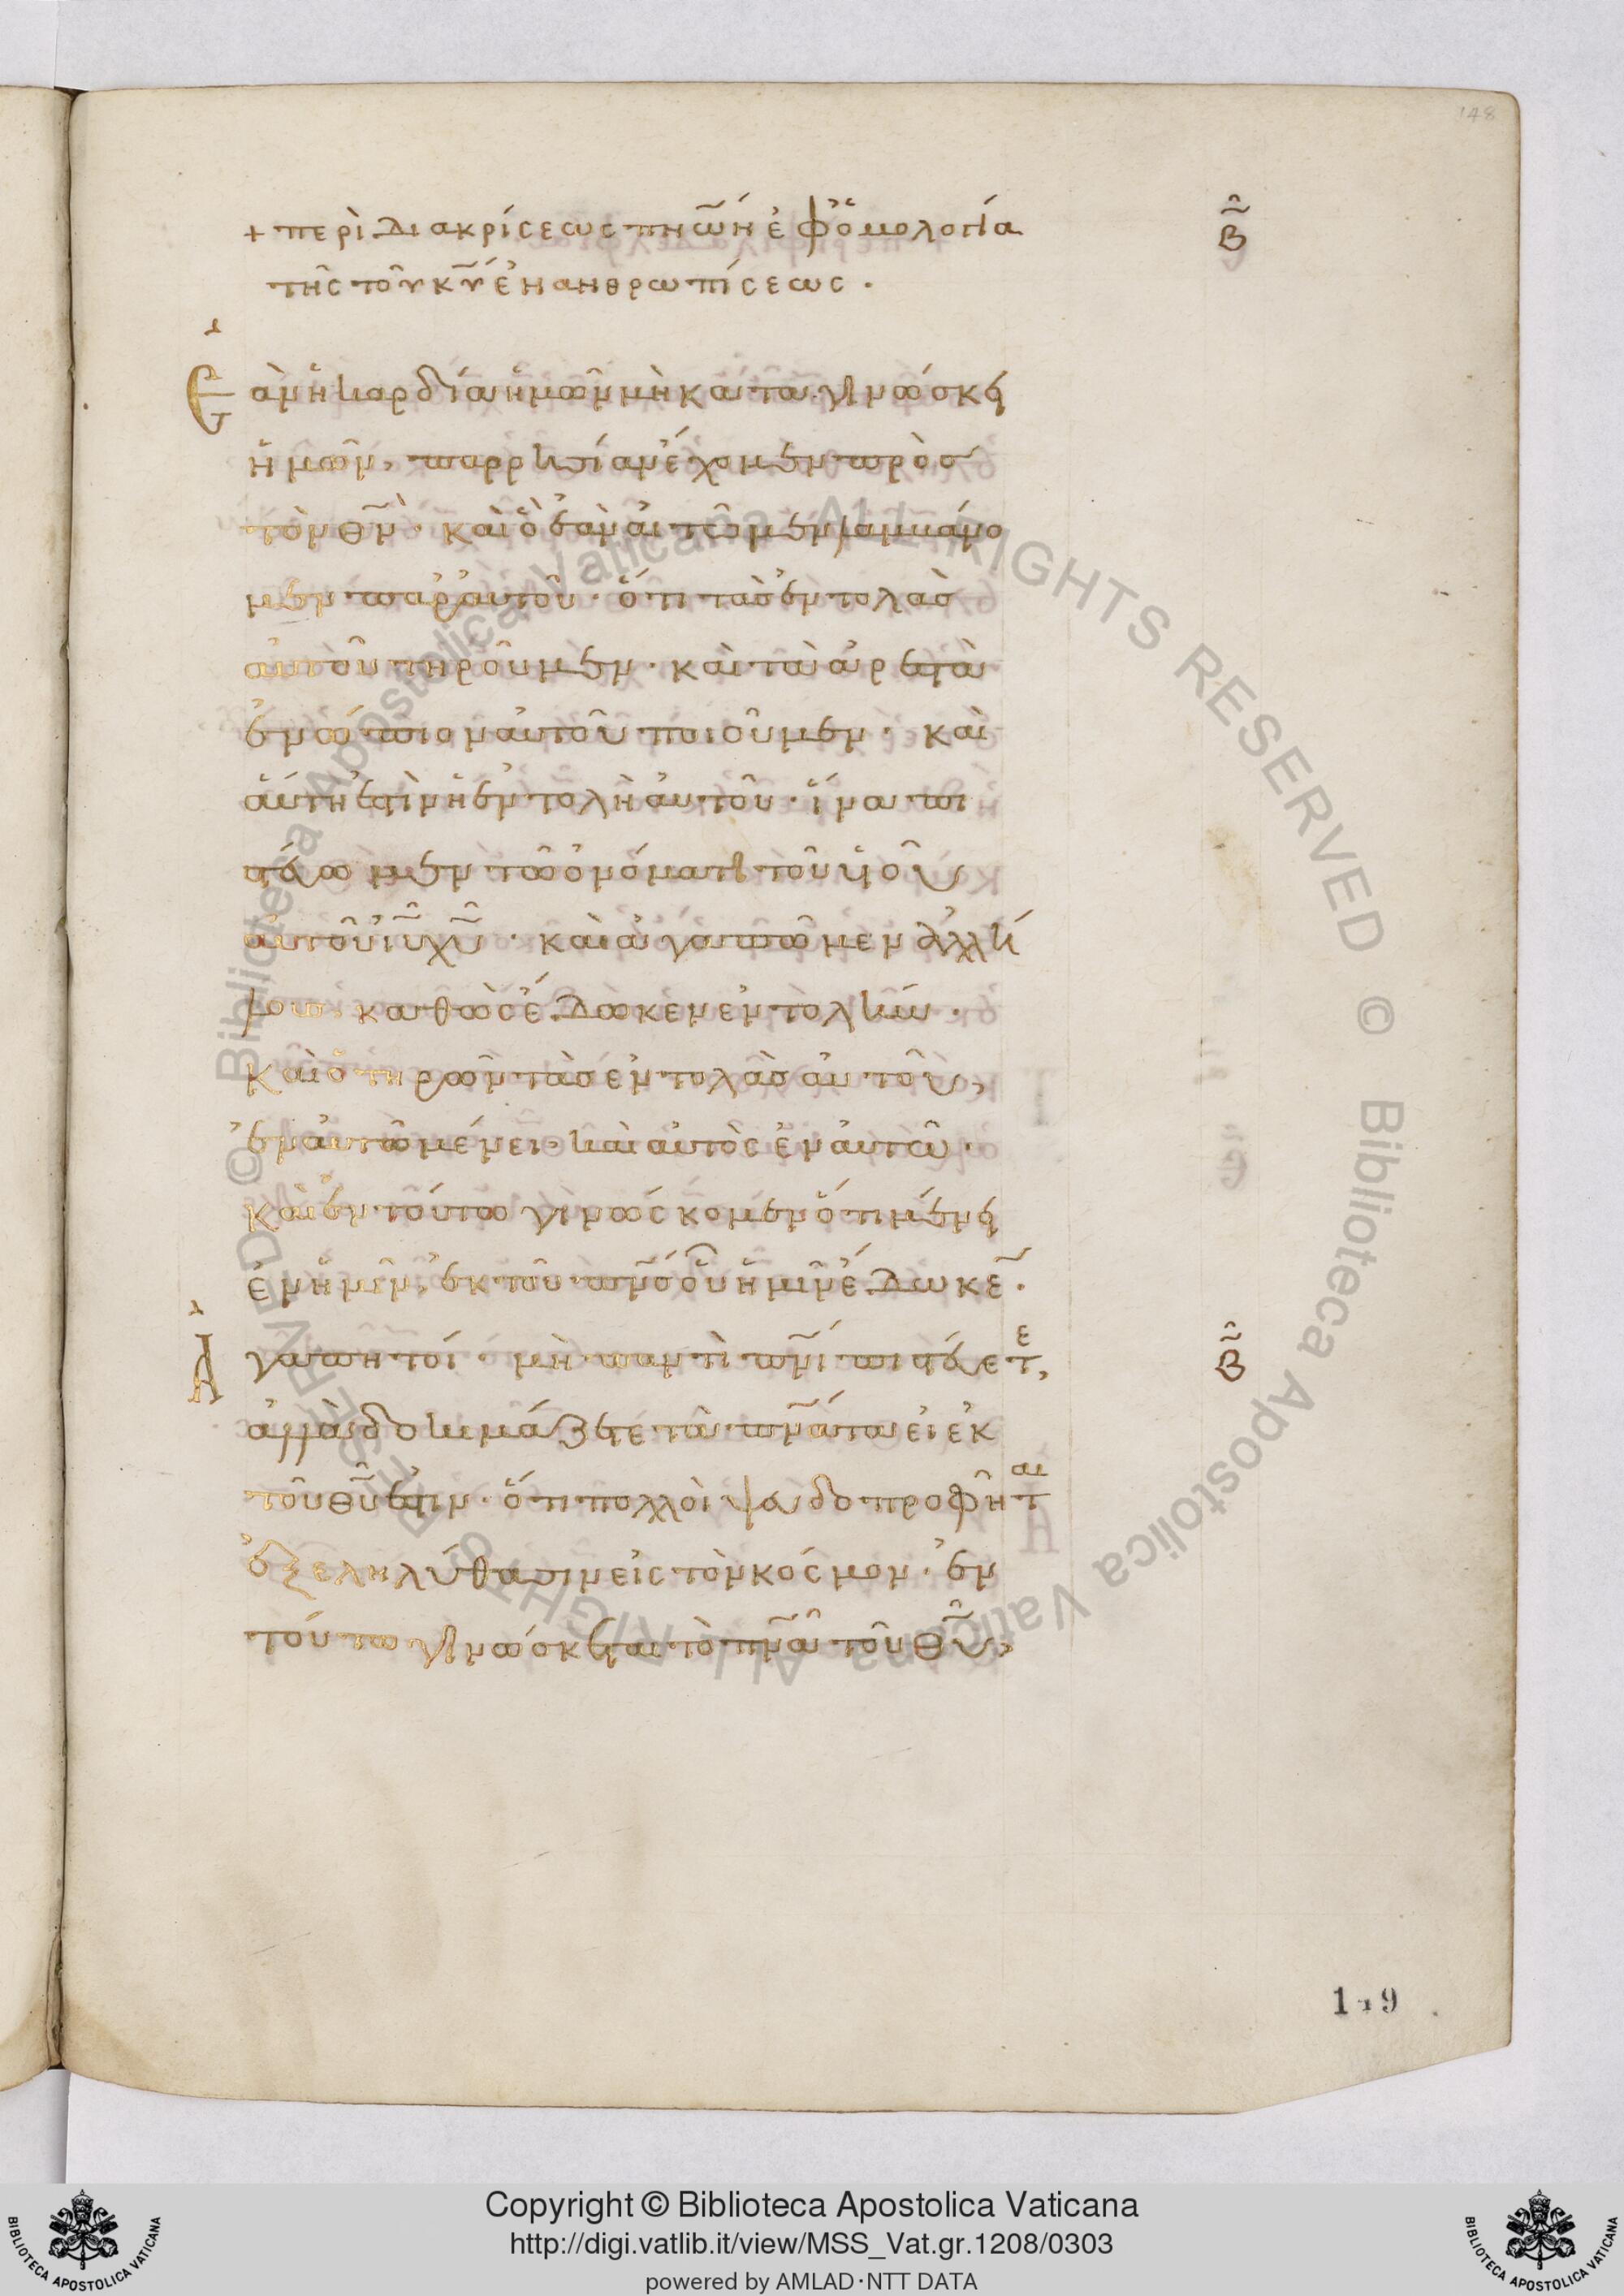 148
+ περὶ διακρίσεως πνω̃ν ἐφ ὁμολογία
β
τῆς τοῦ κυ̃ ἐνανθρωπίσεως .
Ἐὰν ἡ καρδία ἡμῶν μὴ καταγινώσκει
ἡμῶν, παρρησίαν ἔχομεν πρὸς
τὸν θν̃ · καὶ ὃ ἐὰν αἰτῶμεν λαμβάνο
μεν παρ αὐτοῦ · ὅτι τὰς ἐντολὰς
αὐτοῦ τηροῦμεν · καὶ τὰ ἀρεστὰ
ἐνώπιον αὐτοῦ ποιοῦμεν · καὶ
αὕτη ἐστὶν ἡ ἐντολὴ αὐτοῦ · ἵνα πι
στεύωμεν τῶ ὀνόματι τοῦ υἱοῦ
αὐτοῦ ιυ̃ χυ̃ · καὶ ἀγαπῶμεν ἀλλή
λους καθὼς ἔδωκεν ἐντολήν ·
Καὶ ὁ τηρῶν τὰς ἐντολὰς αὐτοῦ,
ἐν αὐτῶ μένει · καὶ αὐτὸς ἐν αὐτῶ ·
Καὶ ἐν τούτω γινώσκομεν ὅτι μένει
ἐν ἡμῖν, ἐκ τοῦ πνς̃ οὗ ἡμῖν ἔδωκε̃ .
Ἀγαπητοί · μὴ παντὶ πνι̃ πιστεύετε,
β
ἀλλὰ δοκιμάζετε τὰ πνα̃τα εἰ ἐκ
τοῦ θυ̃ ἐστιν · ὅτι πολλοὶ ψευδοπροφῆται
ἐξεληλύθασιν εἰς τὸν κόσμον · ἐν
τούτω γινώσκεται τὸ πνα̃ τοῦ θυ̃,
149
© Biblioteca Apostolica Vaticana ALL RIGHTS RESERVED © Biblioteca Apostolica Vaticana ALL RIGHTS RESERVED
Copyright © Biblioteca Apostolica Vaticana
http://digi.vatlib.it/view/MSS_Vat.gr.1208/0303
powered by AMLAD·NTT DATA
BIBLIOTECA APOSTOLICA VATICANA
BIBLIOTECA APOSTOLICA VATICANA